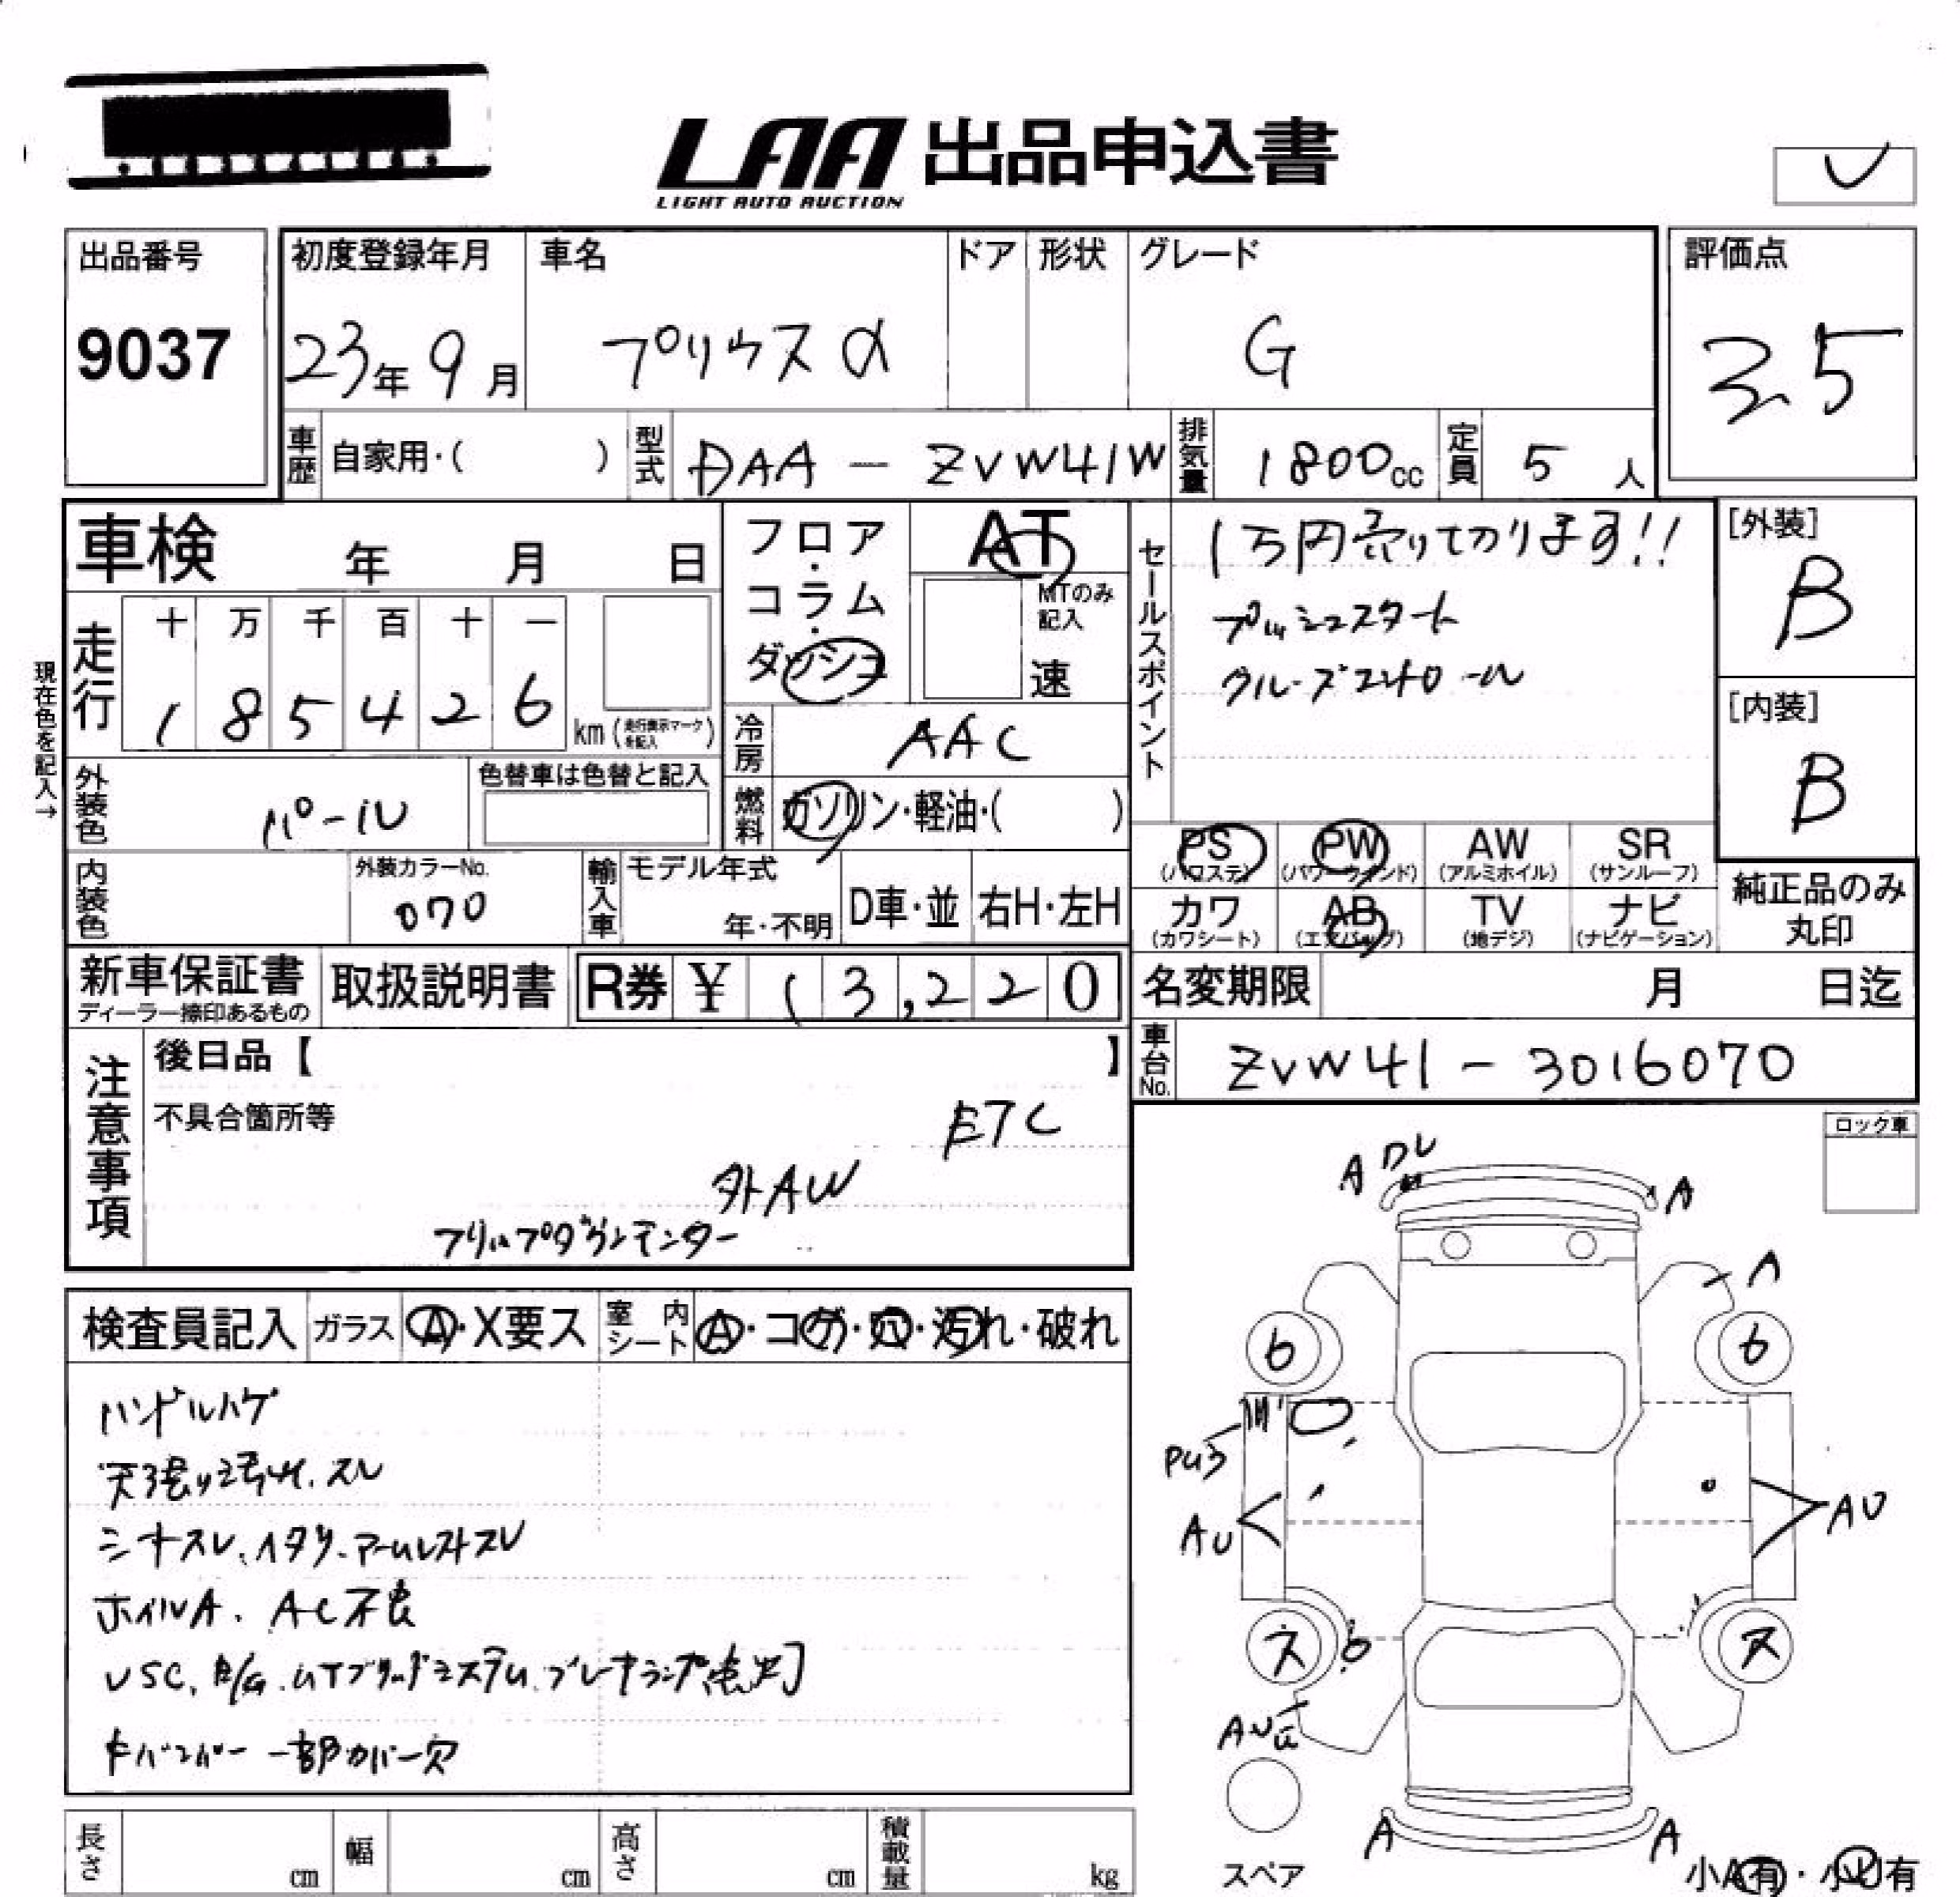 LAA 出品申込書
LIGHT AUTO AUCTION
出品番号
9037
初度登録年月
23年 9月
車名
プリウスα
ドア
形状
グレード
G
評価点
3.5
車歴
自家用・( )
型式
DAA - ZVW41W
排気量
1800cc
定員
5人
車検 年 月 日
走行
十 万 千 百 十 一
1 8 5 4 2 6 km (走行表示マークを記入)
現在色を記入→
外装色
パール
色替車は色替と記入
内装色
外装カラーNo.
070
輸入車
モデル年式
年・不明
D車・並
右H・左H
フロア・
コラム・
ダッシュ
AT
MTのみ記入
速
冷房
AAC
燃料
ガソリン・軽油・( )
セールスポイント
1万円売りてかります!!
プッシュスタート
クルーズコントロール
[外装]
B
[内装]
B
PS (パワステ)
PW (パワーウインド)
AW (アルミホイル)
SR (サンルーフ)
カワ (カワシート)
AB (エアバッグ)
TV (地デジ)
ナビ (ナビゲーション)
純正品のみ
丸印
新車保証書
ディーラー捺印あるもの
取扱説明書
R券 ¥ 13,220
名変期限 月 日迄
車台No.
ZVW41 - 3016070
注意事項
後日品【 】
不具合箇所等
ETC
外AW
フリップダウンモニター
ロック車
検査員記入
ガラス
A・X要ス
室内シート
A・コゲ・穴・汚れ・破れ
ハンドルハゲ
天張り汚れ、スレ
シートスレ、ヘタリ、アームレストスレ
ホイルA、AC不良
VSC、
ブレーキランプ点灯
バンパー一部カバー欠
A
A
A
6
6
AU
AU
ス
ス
A
A
スペア
小A有・小U有
長さ cm
幅 cm
高さ cm
積載量 kg